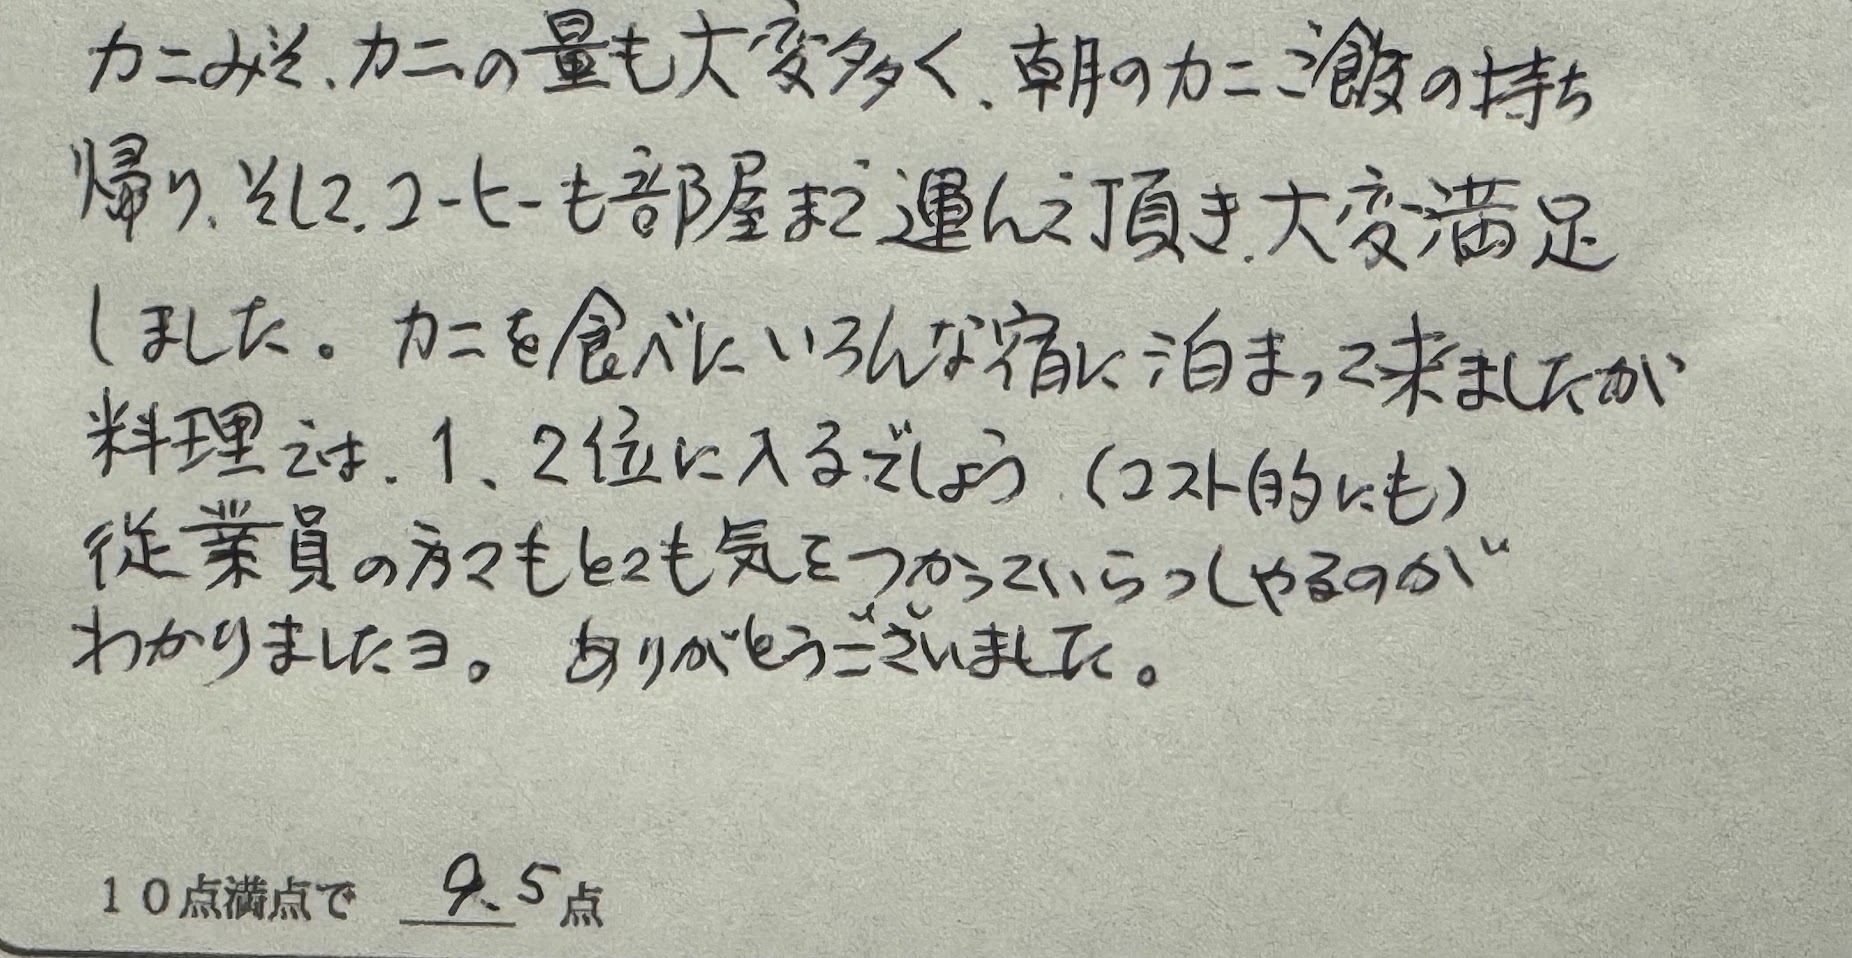 カニみそ、カニの量も大変多く、朝のカニご飯の持ち
帰り、そして、コーヒーも部屋まで運んで頂き、大変満足
しました。カニを食べにいろんな宿に泊まって来ましたが
料理では、1、2位に入るでしょう (コスト的にも)
従業員の方々もとても気をつかっていらっしゃるのが
わかりましたヨ。 ありがとうございました。
10点満点で 9.5点